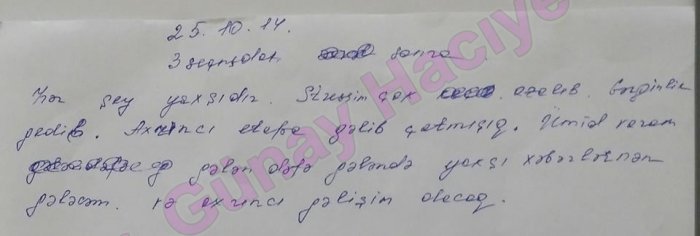 25.10.14.
3 seansdan sonra
Hər şey yaxşıdır. Stresim çox azalıb. Gərginlik
gedib. Axırıncı etapa gəlib çatmışıq. Ümid varam
gələn dəfə gələndə yaxşı xəbərlərnən
gələcəm. və axırıncı gəlişim olacaq.
Günay Hacıye